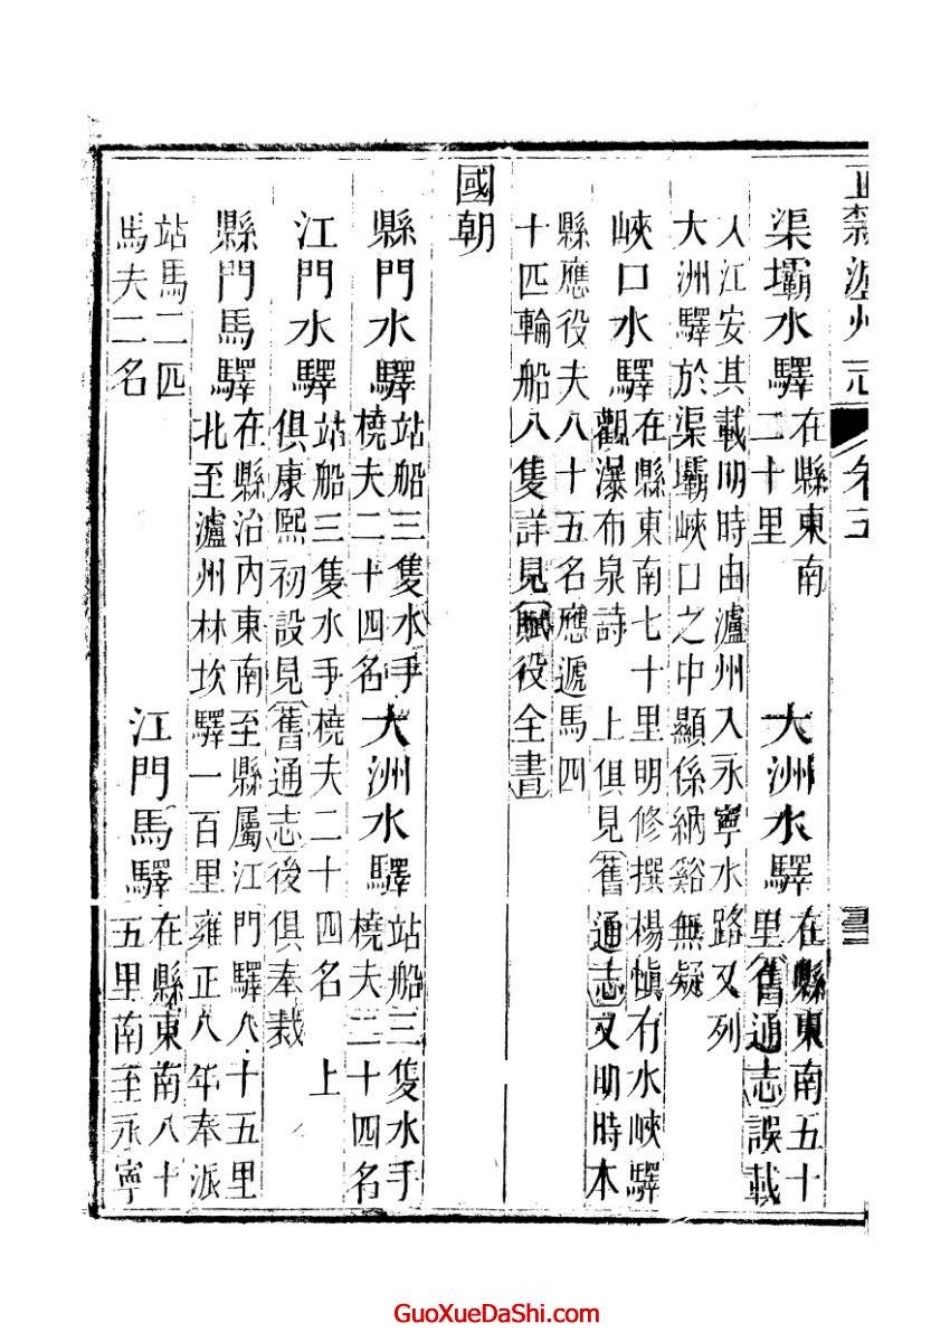 直隸瀘州志 卷五
渠壩水驛 在縣東南
二十里
大洲水驛 在縣東南五十
里舊通志誤載
入江安其載明時由瀘州入永寧水路又列
大洲驛於渠壩峽口之中顯係納谿無疑
峽口水驛 在縣東南七十里明修撰楊慎有水峽驛
觀瀑布泉詩 上俱見舊通志又明時本
縣應役夫八十五名應遞馬四
十匹輪船八隻詳見賦役全書
國朝
縣門水驛 站船三隻水手
橈夫二十四名
大洲水驛 站船三隻水手
橈夫二十四名
江門水驛 站船三隻水手橈夫二十四名 上
俱康熙初設見舊通志後俱奉裁
縣門馬驛 在縣治內東南至縣屬江門驛八十五里
北至瀘州林坎驛一百里雍正八年奉派
站馬二匹
馬夫二名
江門馬驛 在縣東南八十
五里南至永寧
GuoXueDaShi.com